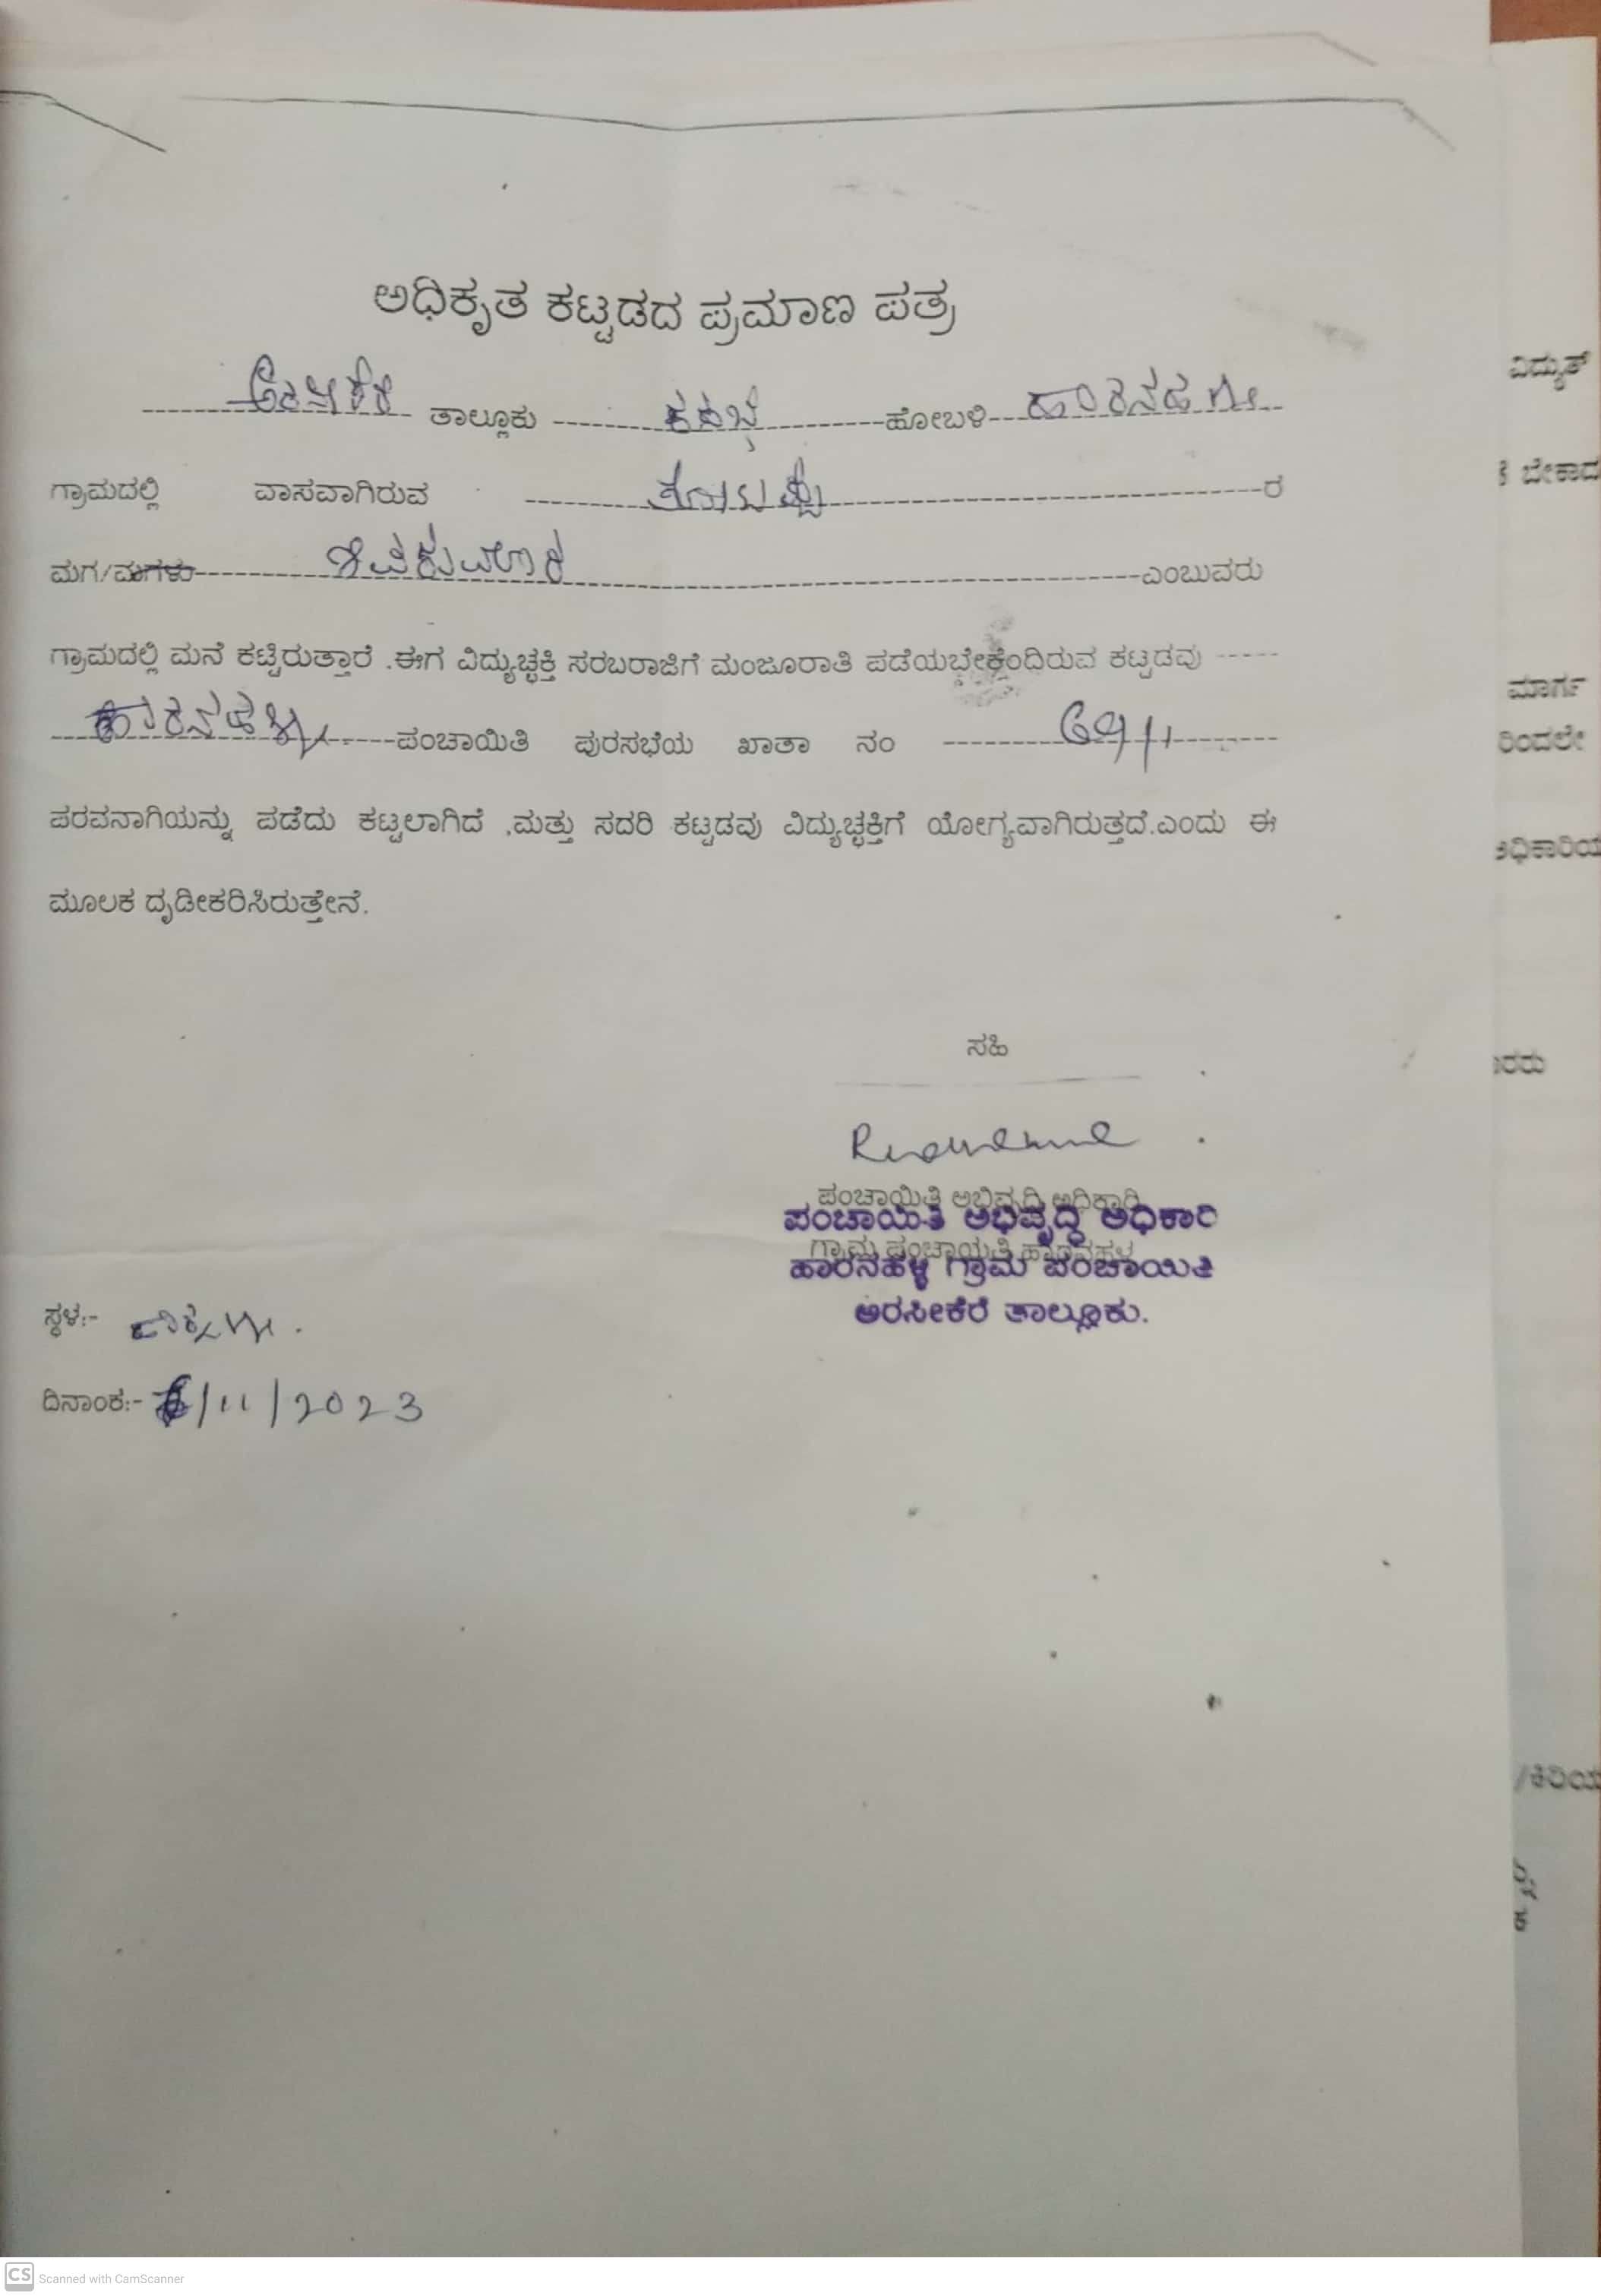 ಅಧಿಕೃತ ಕಟ್ಟಡದ ಪ್ರಮಾಣ ಪತ್ರ
ತಾಲ್ಲೂಕು ಕಸಬ ಹೋಬಳಿ ಹಾರನಹಳ್ಳಿ
ಗ್ರಾಮದಲ್ಲಿ ವಾಸವಾಗಿರುವ ರ
ಮಗ/ಮಗಳು ಶಿವಕುಮಾರ ಎಂಬುವರು
ಗ್ರಾಮದಲ್ಲಿ ಮನೆ ಕಟ್ಟಿರುತ್ತಾರೆ .ಈಗ ವಿದ್ಯುಚ್ಛಕ್ತಿ ಸರಬರಾಜಿಗೆ ಮಂಜೂರಾತಿ ಪಡೆಯಬೇಕೆಂದಿರುವ ಕಟ್ಟಡವು
ಹಾರನಹಳ್ಳಿ ಪಂಚಾಯಿತಿ ಪುರಸಭೆಯ ಖಾತಾ ನಂ
ಪರವನಾಗಿಯನ್ನು ಪಡೆದು ಕಟ್ಟಲಾಗಿದೆ ,ಮತ್ತು ಸದರಿ ಕಟ್ಟಡವು ವಿದ್ಯುಚ್ಛಕ್ತಿಗೆ ಯೋಗ್ಯವಾಗಿರುತ್ತದೆ.ಎಂದು ಈ
ಮೂಲಕ ದೃಡೀಕರಿಸಿರುತ್ತೇನೆ.
ಸಹಿ
ಪಂಚಾಯಿತಿ ಅಭಿವೃದ್ಧಿ ಅಧಿಕಾರಿ
ಪಂಚಾಯಿತಿ ಅಭಿವೃದ್ಧಿ ಅಧಿಕಾರಿ
ಗ್ರಾಮ ಪಂಚಾಯತಿ ಹಾರನಹಳ್ಳಿ
ಹಾರನಹಳ್ಳಿ ಗ್ರಾಮ ಪಂಚಾಯಿತಿ
ಅರಸೀಕೆರೆ ತಾಲ್ಲೂಕು.
ಸ್ಥಳ:-
ದಿನಾಂಕ:- /11/2023
ವಿದ್ಯುತ್
ಬೇಕಾದ
ಮಾರ್ಗ
ರಿಂದಲೇ
/ಕಿರಿಯ
CS Scanned with CamScanner